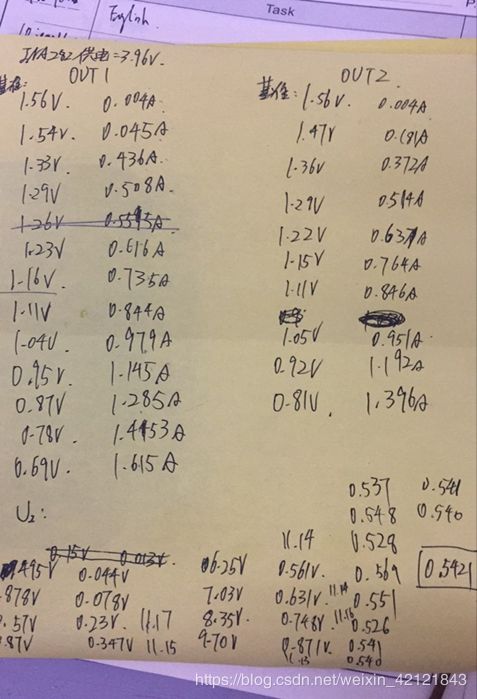 Task
English
INA282 供电=3.96V.
OUT1 OUT2
基准: 1.56V. 0.004A 基准: 1.56V. 0.004A
1.54V. 0.045A 1.47V 0.191A
1.33V. 0.436A. 1.36V 0.372A
1.29V 0.508A. 1.29V 0.514A
1.23V 0.616A 1.22V 0.637A
1.16V. 0.735A 1.15V 0.764A
1.11V 0.844A 1.11V 0.846A
1.04V. 0.979A 1.05V 0.951A
0.95V. 1.145A 0.92V 1.192A
0.87V 1.285A 0.81V. 1.396A
0.78V. 1.453A
0.69V. 1.615A
0.537 0.541
U₂: 0.548 0.540
11.14 0.528
0.15V 0.013V.
.495V 0.044V 6.25V 0.561V. 0.569 0.5421
.878V 0.078V 7.03V 0.631V. 11.14 0.551
.57V 0.23V 11.17 8.35V. 0.748V 11.16 0.526
.87V 0.347V 11.15 9.70V 0.871V. 0.541
0.540
https://blog.csdn.net/weixin_42121843